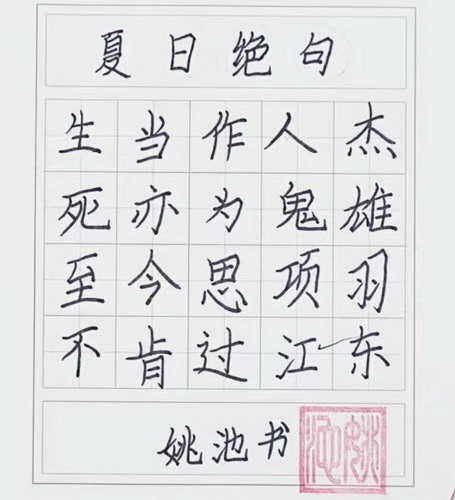 夏日绝句
生当作人杰
死亦为鬼雄
至今思项羽
不肯过江东
姚池书